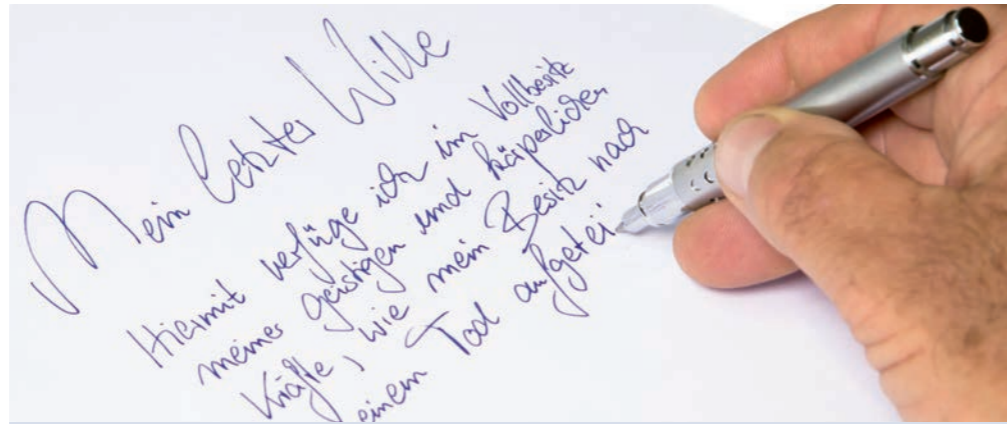 Mein letzter Wille
Hiermit verfüge ich im Vollbesitz
meiner geistigen und körperlicher
Kräfte, wie mein Besitz nach
einem Tod aufgetei